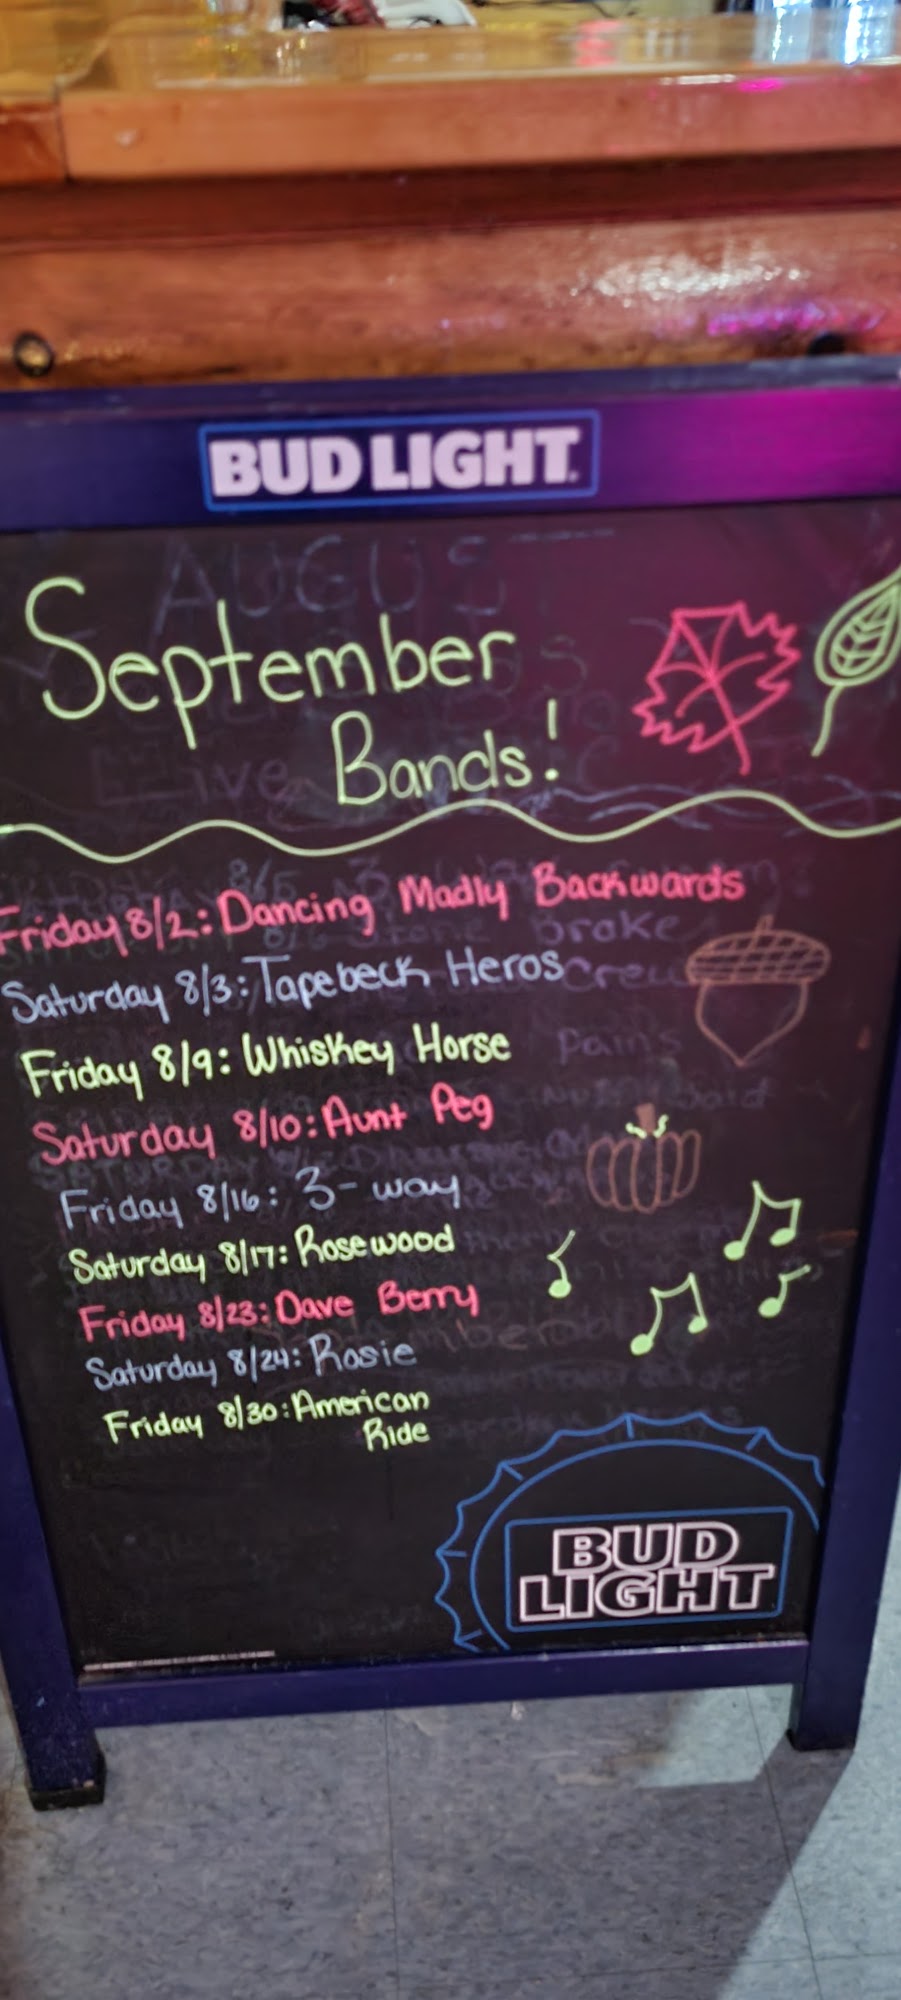 BUD LIGHT
AUGUS
September
Bands!
Live
Friday 8/2: Dancing Madly Backwards
broke
Saturday 8/3: Tapebeck Heros
Crew
Friday 8/9: Whiskey Horse
pains
Saturday 8/10: Aunt Peg
Friday 8/16: 3-way
Saturday 8/17: Rosewood
Friday 8/23: Dave Berry
Saturday 8/24: Rosie
Friday 8/30: American
Ride
BUD
LIGHT